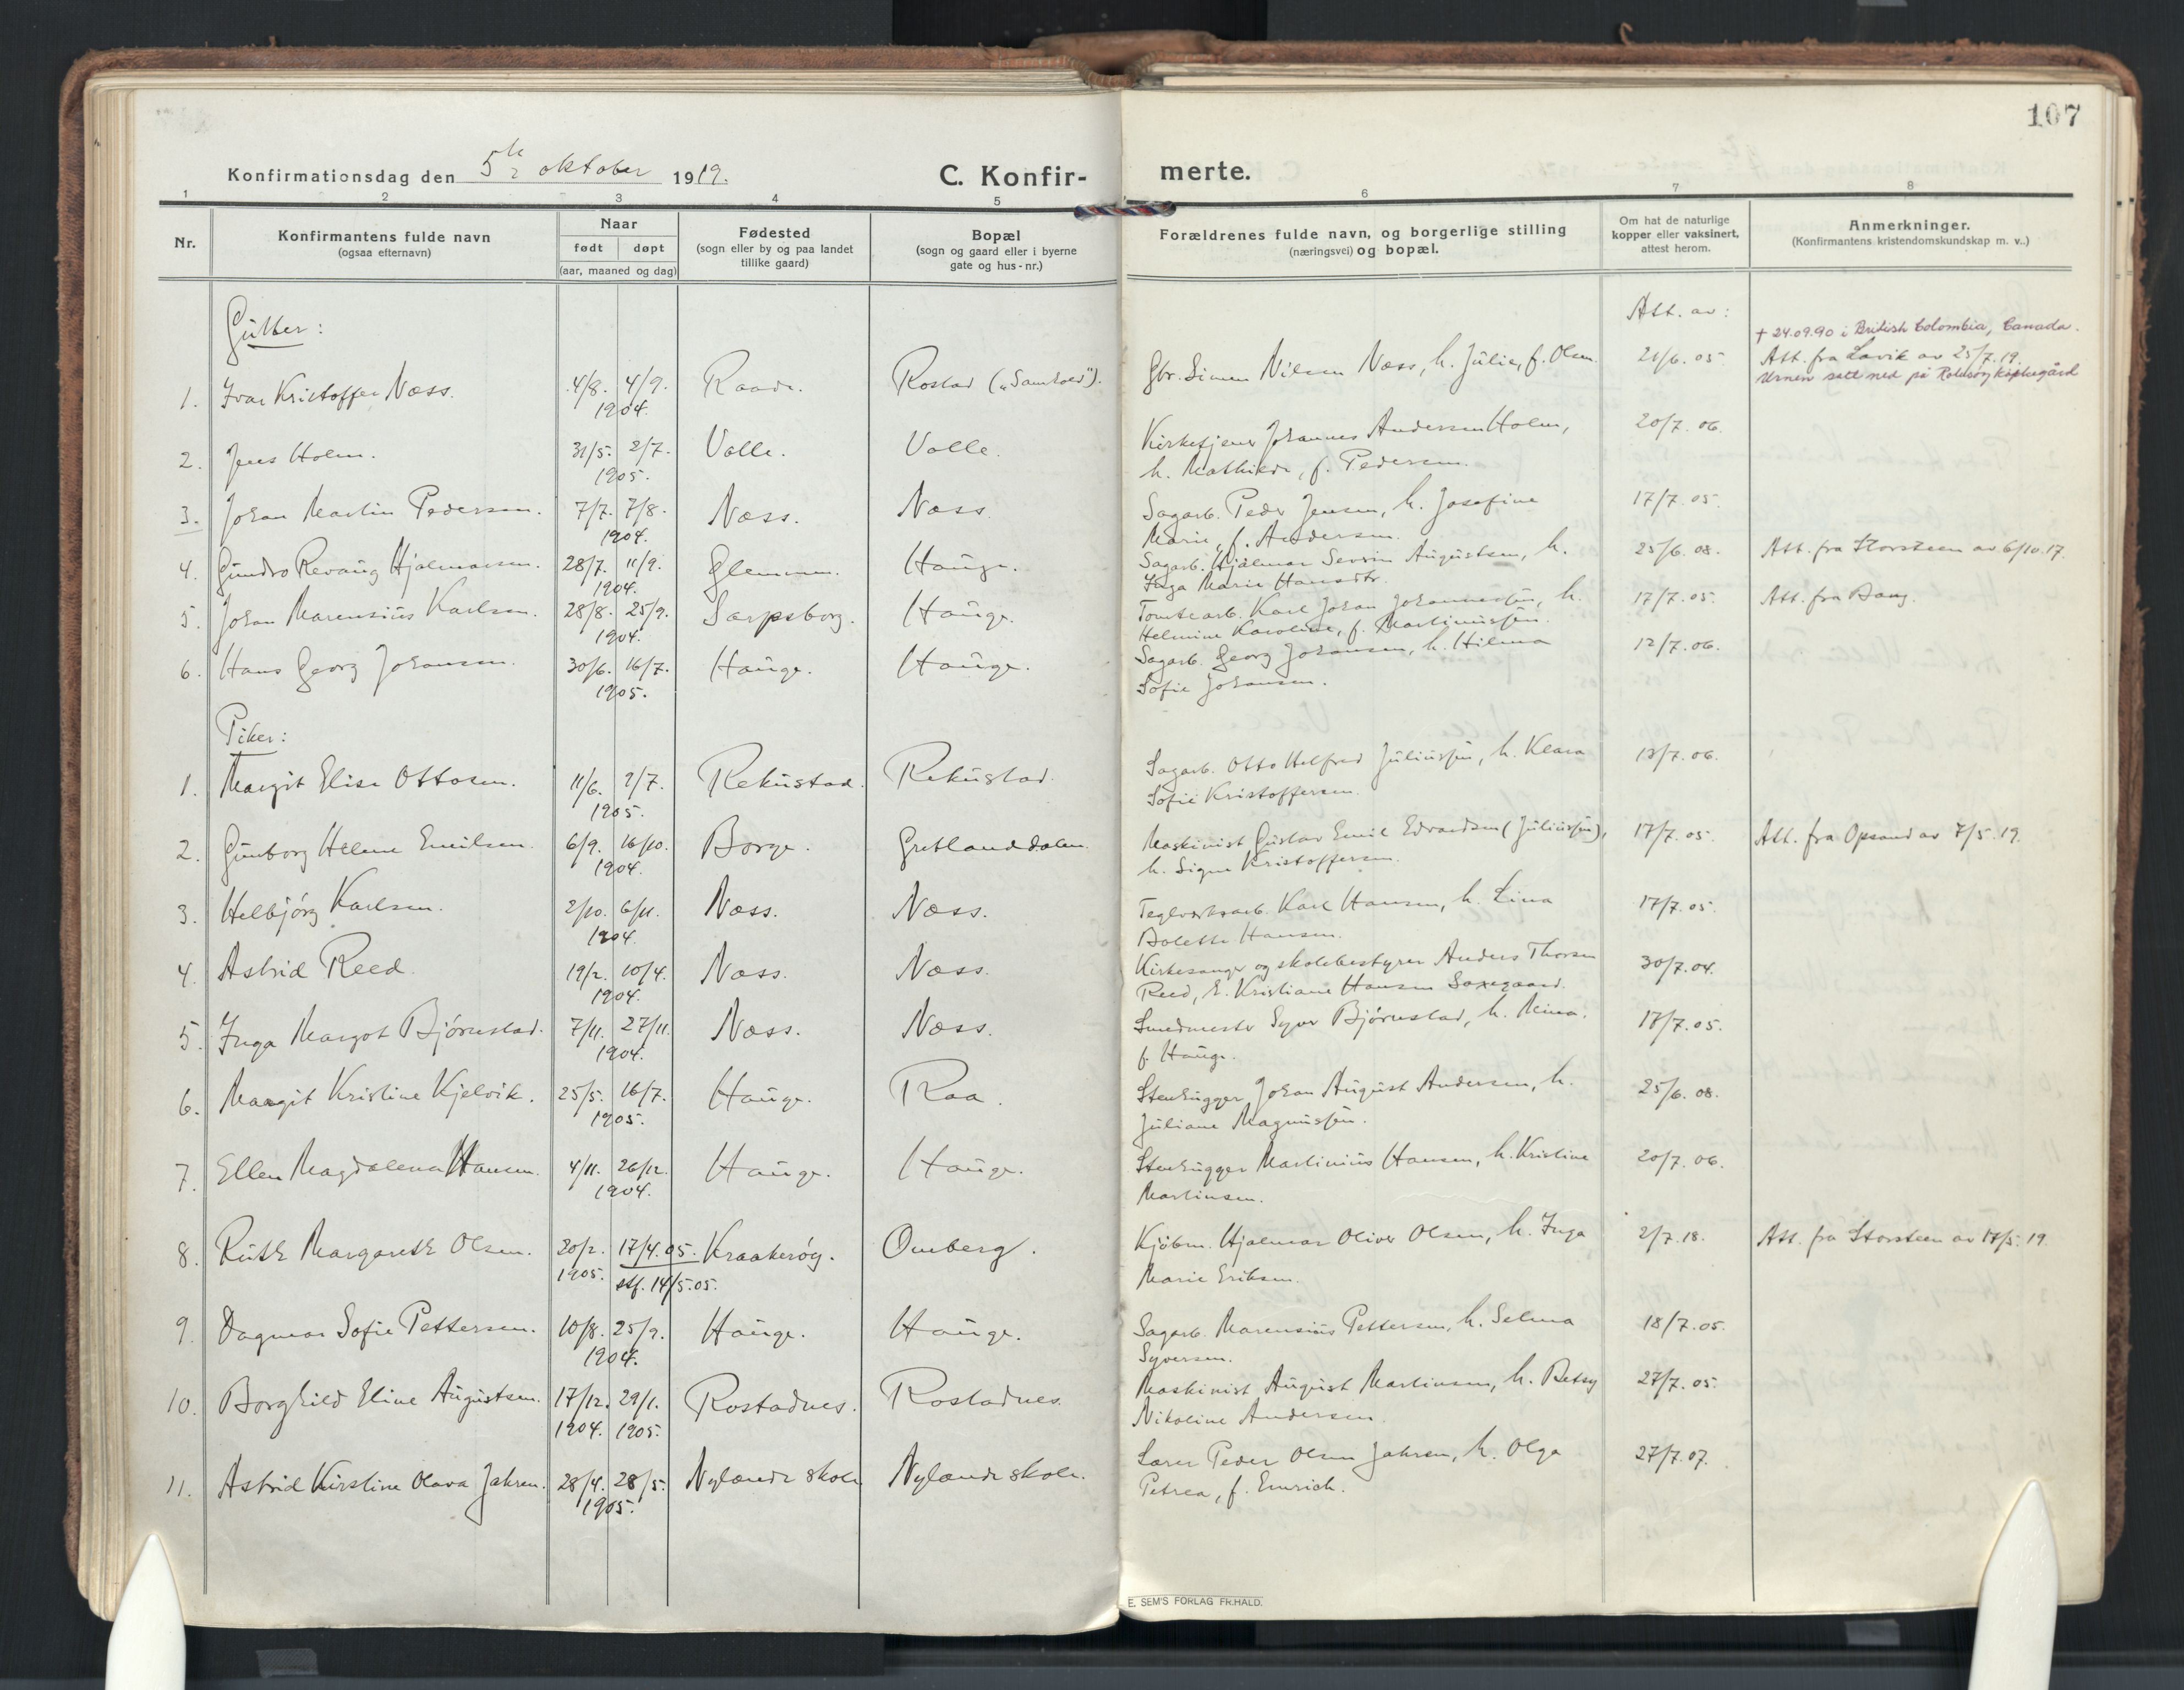 107
Konfirmationsdag den 5te oktober 1919. C. Konfir- merte.
1 2 3 4 5 6 7 8
Nr. Konfirmantens fulde navn (ogsaa efternavn) Naar født døpt (aar, maaned og dag) Fødested (sogn eller by og paa landet tillike gaard) Bopæl (sogn og gaard eller i byerne gate og hus-nr.) Forældrenes fulde navn, og borgerlige stilling (næringsvei) og bopæl. Om hat de naturlige kopper eller vaksinert, attest herom. Anmerkninger. (Konfirmantens kristendomskundskap m. v..)
Gutter: Att. av:
† 24.09.90 i British Colombia, Canada.
1. Ivar Kristoffer Næss. 4/8. 4/9. 1904. Raade. Rostad („Samhold"). Gbr. Simen Nilsen Næss, h. Julie, f. Olsen. 21/6. 05 Att. fra Lavik av 25/7.19.
Urnen satt ned på Rolvsøy kirkegård
2. Jens Holm. 31/5. 2/7. 1905. Valle. Valle. Kirketjener Johannes Andersen Holm,
h. Mathilde, f. Pedersen. 20/7. 06.
3. Johan Martin Pedersen. 7/7. 7/8. 1904. Næss. Næss. Sagarb. Peder Jensen, h. Josefine
Marie, f. Andersen. 17/7. 05.
4. Gundro Revaug Hjalmarsen. 28/7. 11/9. 1904. Glemmen. Hauge. Sagarb. Hjalmar Severin Augustsen, h.
Inga Marie Hansdtr. 25/6. 08. Att. fra Storsteen av 6/10.17.
5. Johan Marensius Karlsen. 28/8. 25/9. 1904. Sarpsborg. Hauge. Tomtearb. Karl Johan Johannessen, h.
Helmine Karoline, f. Martinussen. 17/7. 05. Att. fra Bang.
6. Hans Georg Johansen. 30/6. 16/7. 1905. Hauge. Hauge. Sagarb. Georg Johansen, h. Hilma
Sofie Johansen. 12/7. 06.
Piker:
1. Margit Elise Ottosen. 11/6. 2/7. 1905. Rekustad. Rekustad. Sagarb. Otto Helfred Juliussen, h. Klara
Sofie Kristoffersen. 13/7. 06.
2. Gunborg Helene Emilsen. 6/9. 16/10. 1904. Borge. Gretlanddalen. Maskinist Gustav Emil Edvardsen (Juliussen),
h. Signe Kristoffersen. 17/7. 05. Att. fra Opsand av 7/5. 19.
3. Helbjörg Karlsen. 2/10. 6/11. 1904. Næss. Næss. Teglverksarb. Karl Hansen, h. Lina
Bolette Hansen. 17/7. 05.
4. Astrid Reed. 19/2. 10/4. 1904. Næss. Næss. Kirkesanger og skolebestyrer Anders Thorsen
Reed, h. Kristiane Hansen Saxegaard. 30/7. 04.
5. Inga Margot Bjørnstad. 7/11. 27/11. 1904. Næss. Næss. Smedmester Syver Bjørnstad, h. Mina.
f. Hauge. 17/7. 05.
6. Margit Kristine Kjelvik. 25/5. 16/7. 1905. Hauge. Raa. Stenhugger Johan August Andersen, h.
Juliane Magnussen. 25/6. 08.
7. Ellen Magdalena Hansen. 4/11. 26/12. 1904. Hauge. Hauge. Stenhugger Martinius Hansen, h. Kristine
Martinsen. 20/7. 06.
8. Ruth Margareth Olsen. 20/2. 1905. 17/4.05. stf. 14/5.05. Kraakerøy. Omberg. Kjøbm. Hjalmar Oliver Olsen, h. Inga
Marie Eriksen. 2/7. 18. Att. fra Storsteen av 17/5. 19.
9. Dagmar Sofie Pettersen. 10/8. 25/9. 1904. Hauge. Hauge. Sagarb. Marensius Pettersen, h. Selma
Syversen. 18/7. 05.
10. Borghild Eline Augustsen. 17/12. 1904. 29/1. 1905. Rostadnes. Rostadnes. Maskinist August Martinsen, h. Betsy
Nikoline Andersen. 27/7. 05.
11. Astrid Kirstine Olava Jahren. 28/4. 28/5. 1905. Nylande skole Nylande skole. Lærer Peder Olsen Jahren, h. Olga
Petrea, f. Emrich. 27/7. 07.
E. SEM'S FORLAG FR.HALD.